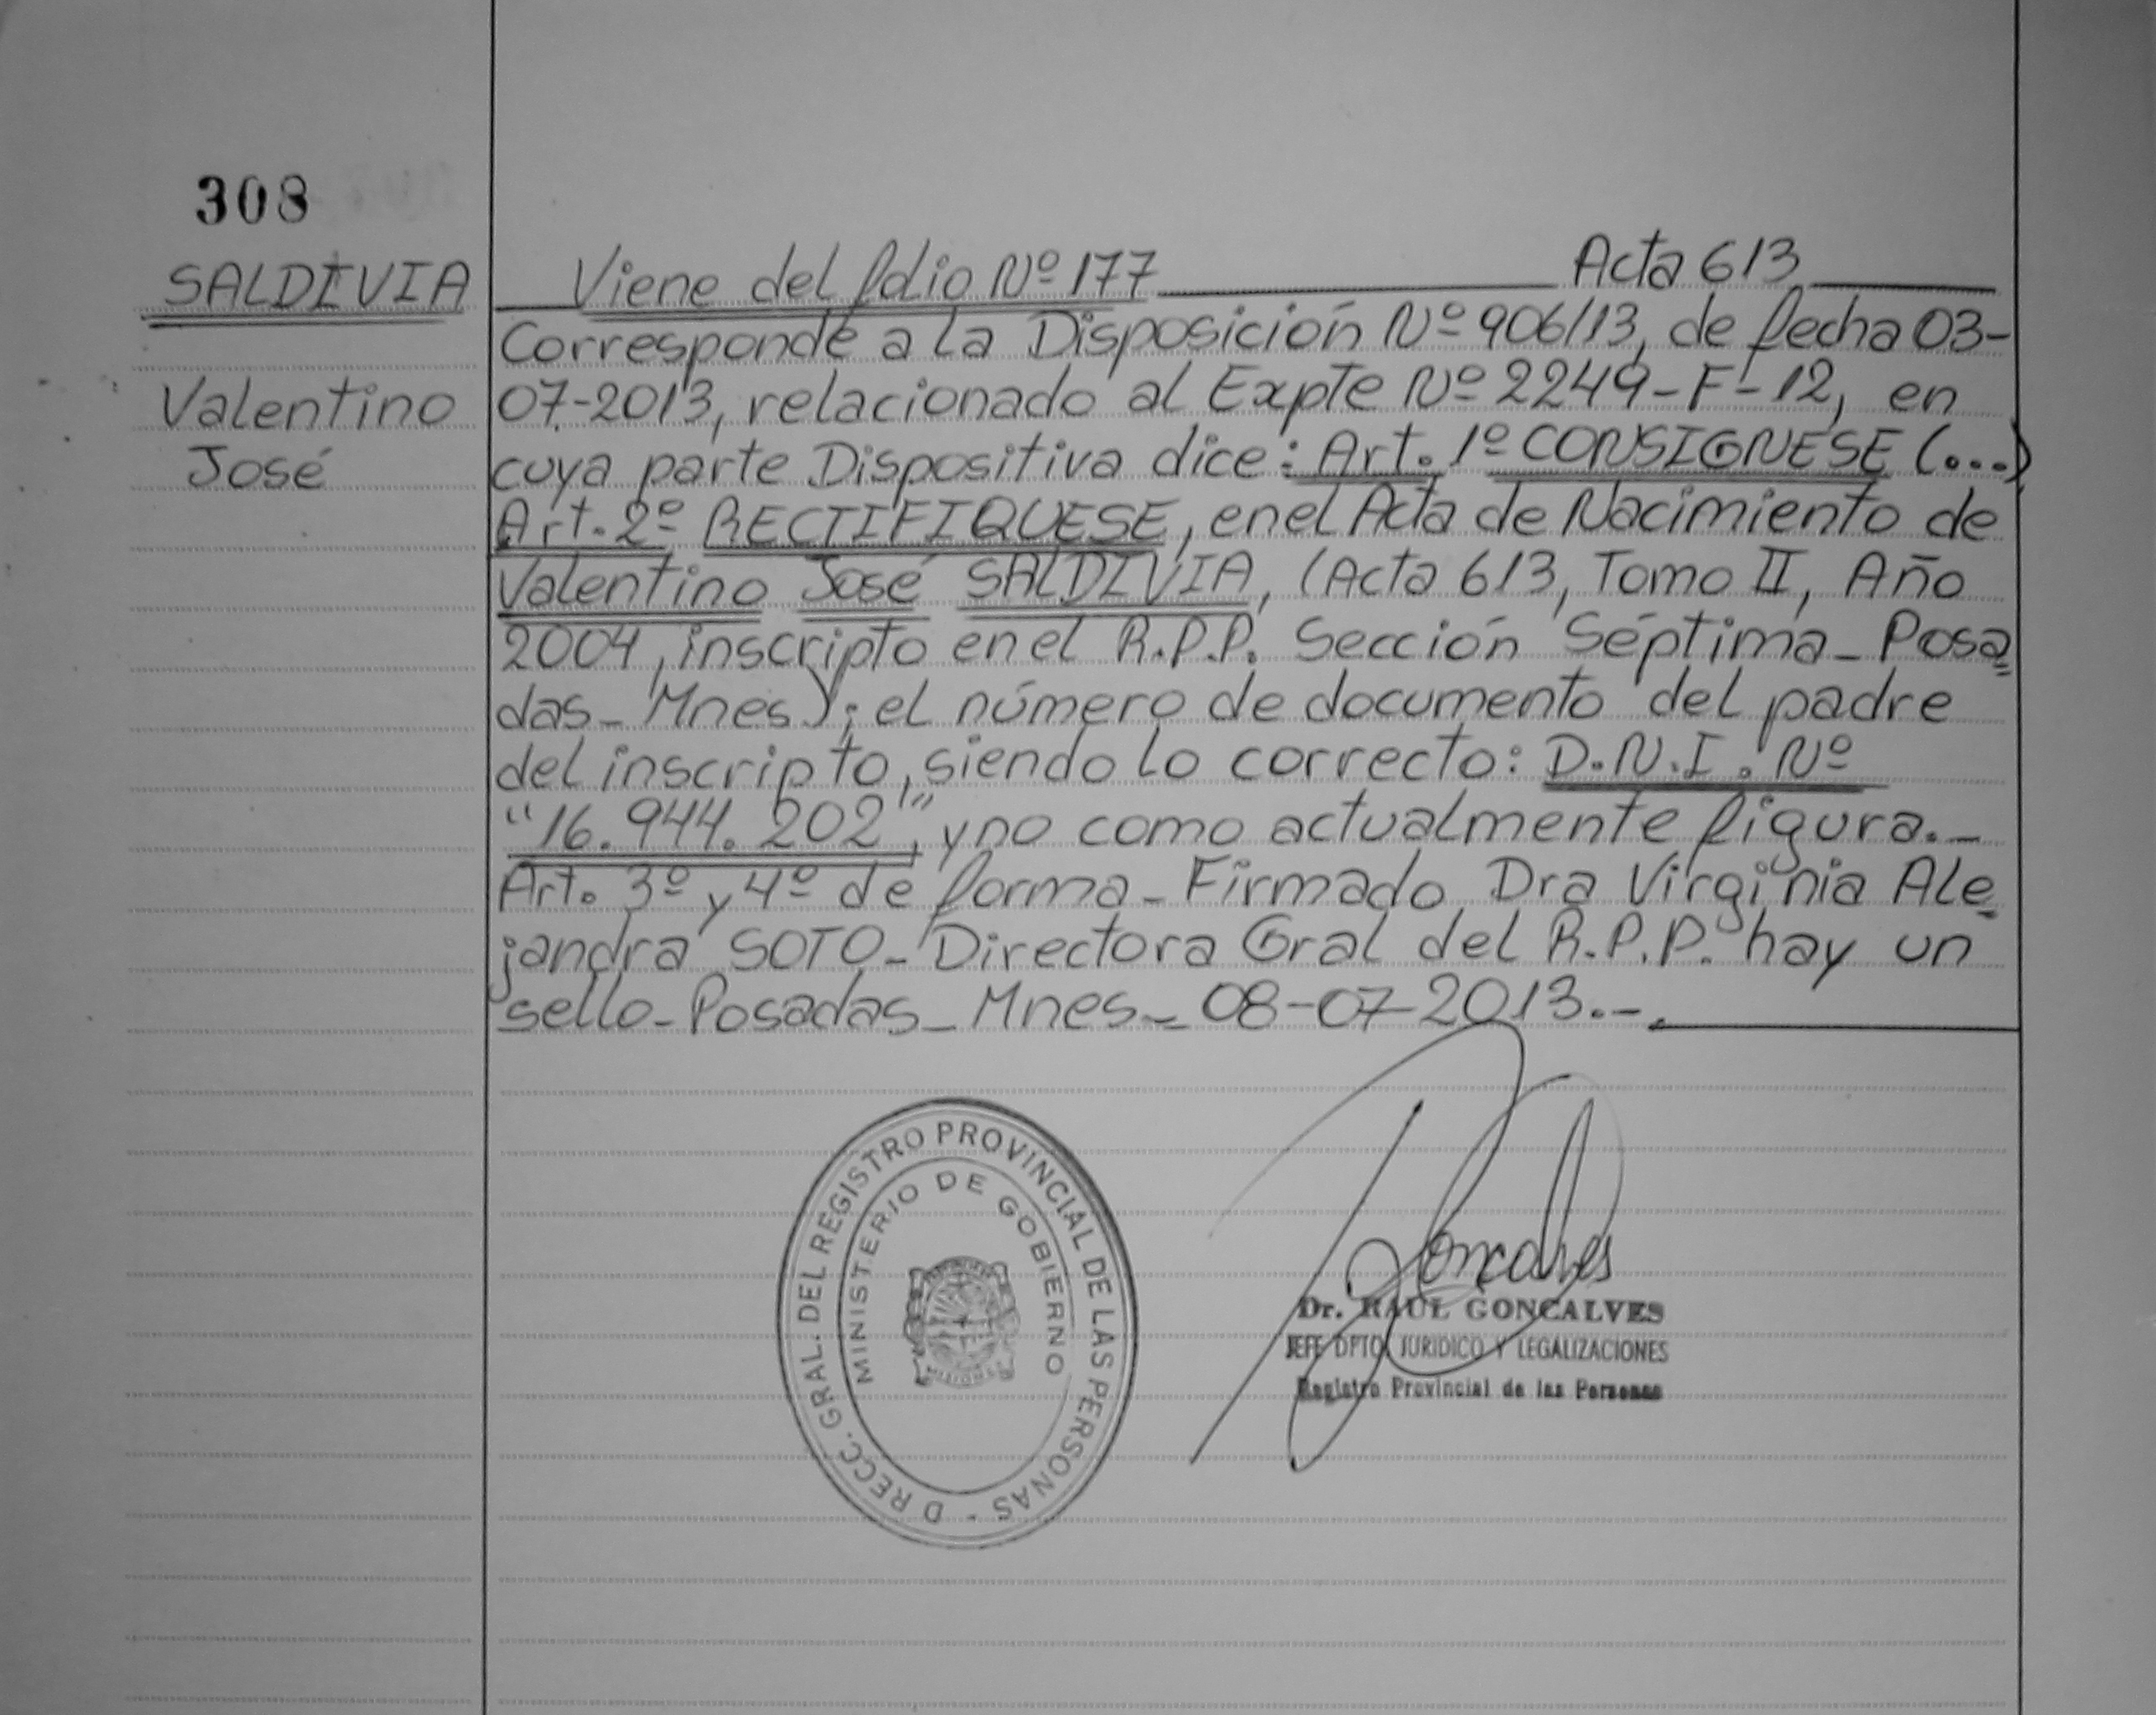 308
SALDIVIA
Valentino
José
Viene del folio Nº 177 Acta 613
Corresponde a la Disposición Nº 906/13, de fecha 03-
07-2013, relacionado al Expte Nº 2249-F-12, en
cuya parte Dispositiva dice: Art. 1º CONSIGNESE (...)
Art. 2º RECTIFIQUESE, en el Acta de Nacimiento de
Valentino José SALDIVIA, (Acta 613, Tomo II, Año
2004, inscripto en el R.P.P. Sección Séptima_ Posa
das_ Mnes); el número de documento del padre
del inscripto, siendo lo correcto: D.N.I. Nº
"16.944.202", y no como actualmente figura._
Art. 3º y 4º de forma_ Firmado Dra Virginia Ale
jandra SOTO_ Directora Gral del R.P.P. hay un
sello_ Posadas_ Mnes_ 08-07-2013.-.
D RECC. GRAL. DEL REGISTRO PROVINCIAL DE LAS PERSONAS
MINISTERIO DE GOBIERNO
MISIONES
Goncalves
Dr. RAUL GONCALVES
JEFE DPTO. JURIDICO Y LEGALIZACIONES
Registro Provincial de las Personas